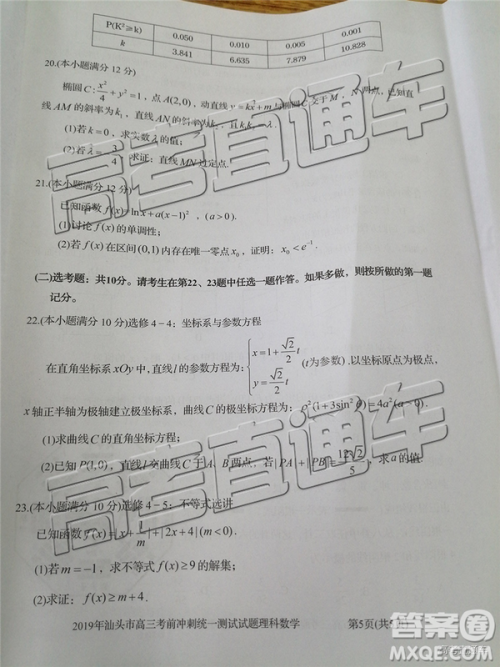 P(K²≥k) 0.050 0.010 0.005 0.001
k 3.841 6.635 7.879 10.828
20.(本小题满分12分)
椭圆C:x²/4+y²=1，点A(2,0)，动直线y=kx+m与椭圆C交于M、N两点，已知直
线AM的斜率为k₁，直线AN的斜率为
(1)若k=0，求实数λ的值；
求证：直线MN过定点
21.(本小题满分12分)
已知函数f(x)=lnx+a(x-1)²，(a>0).
(1)讨论f(x)的单调性；
(2)若f(x)在区间(0,1)内存在唯一零点x₀，证明：x₀<e⁻¹.
(二)选考题：共10分。请考生在第22、23题中任选一题作答。如果多做，则按所做的第一题
记分。
22.(本小题满分10分)选修4-4：坐标系与参数方程
在直角坐标系xOy中，直线l的参数方程为：{x=1+√2/2 t, y=√2/2 t (t为参数)，以坐标原点为极点，
x轴正半轴为极轴建立极坐标系，曲线C的极坐标方程为：ρ²(1+3sin²θ)=4a²(a>0).
(1)求曲线C的直角坐标方程；
(2)已知P(1,0)，直线l交曲线C于A、B两点，若|PA|+|PB|=12√2/5，求a的值.
23.(本小题满分10分)选修4-5：不等式选讲
已知函数f(x)=|x+1/m|+|2x+4|(m<0).
(1)若m=-1，求不等式f(x)≥9的解集；
(2)求证：f(x)
2019年汕头市高三考前冲刺统一测试试题理科数学 第5页(共
高考直通车
高考直通车
高考直通车
答案圈